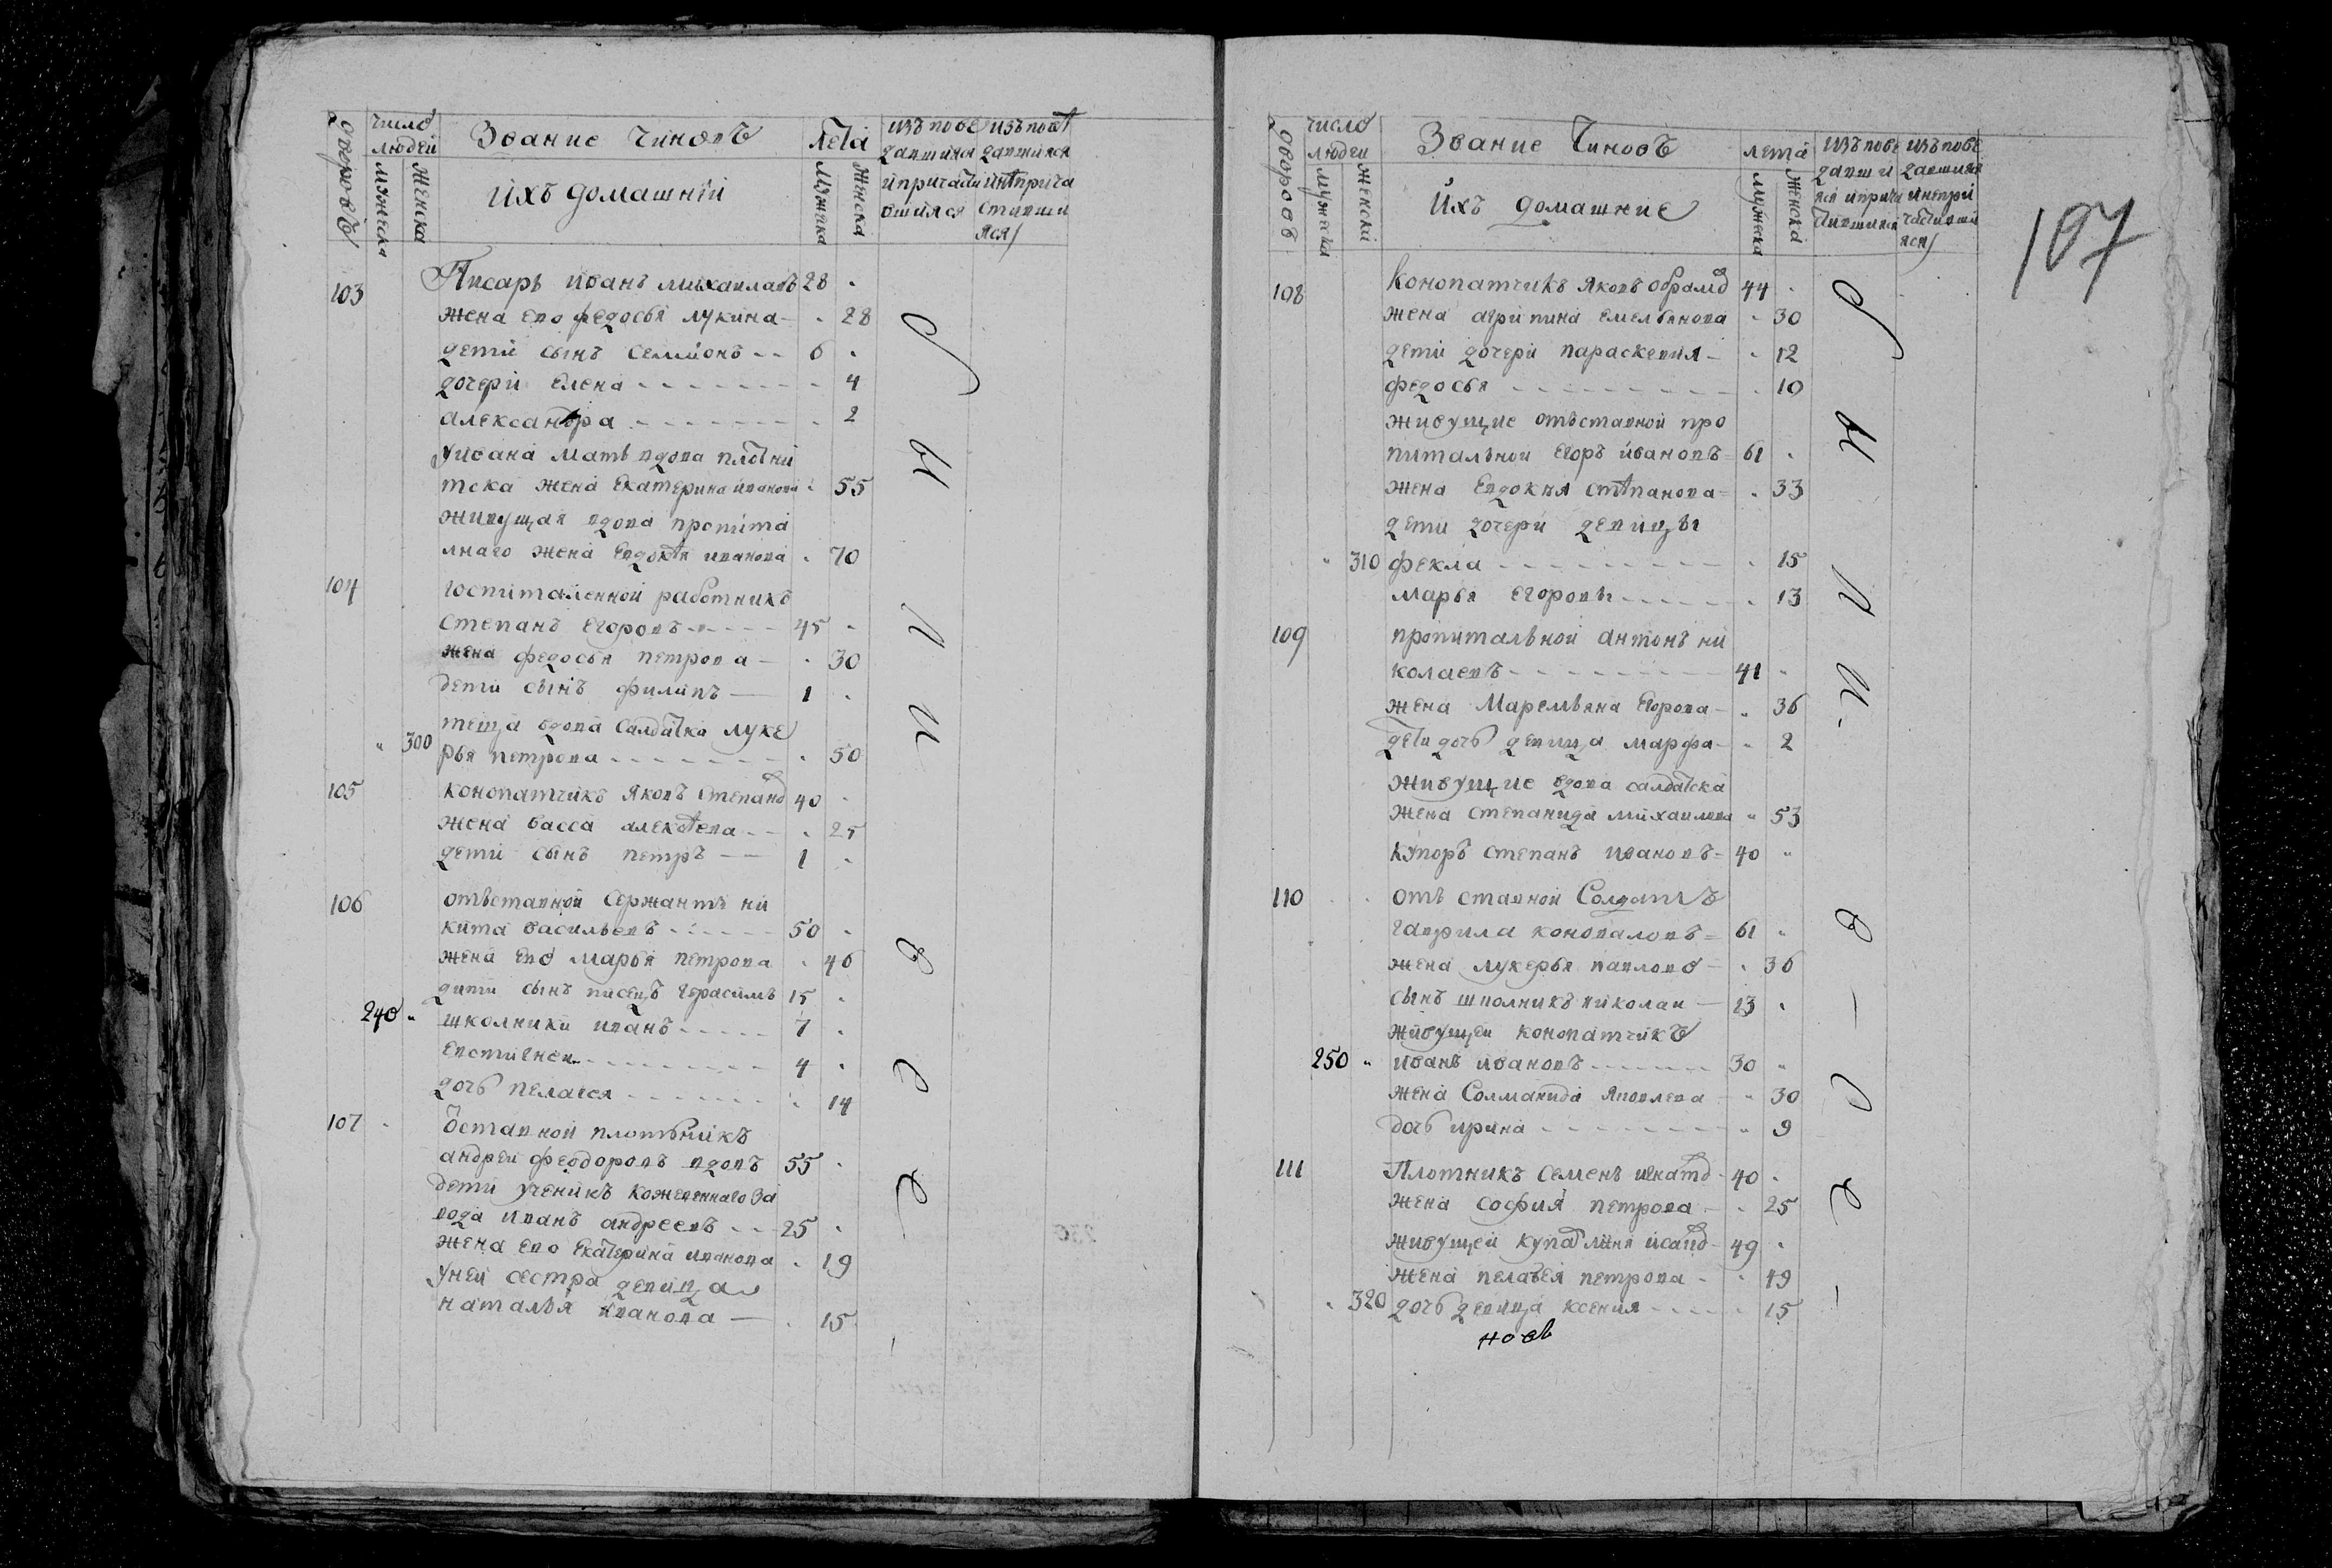 дворовъ
число людей
мужеска
женска
Звание чиновъ
ихъ домашній
Лета
мужеска
женска
изъ пове
давшияся
и прича
вшияся
изъ пове
давшияся
и не прича
стивши
яся
103 Писарь иванъ михаилавъ 28
жена ево федосья лукина 28
дети сынъ семионъ 6
дочери елена 4
александра 2
у ивана мать вдова плотни
тска жена Екатерина иванова 55
живущая вдова пропита
лнаго жена Евдокѣя иванова 70
104 госпиталенной работникъ
степанъ егоровъ 45
жена федосья петрова 30
дети сынъ филипъ 1
теща вдова салдатка луке
300 рья петрова 50
105 конопатчикъ яковъ степано 40
жена васса алексѣева 25
дети сынъ петръ 1
106 отъставной сержантъ ни
кита васильевъ 50
жена ево марья петрова 46
дити сынъ писецъ герасимъ 15
240 школники иванъ 7
евстигнеи 4
дочь пелагея 14
107 оставной плотьникъ
андреи феодоровъ вдовъ 55
дети ученикъ кожевеннаго за
вода иванъ андреевъ 25
жена ево Екатерина иванова 19
у неи сестра девица
наталья иванова 15
о
н
и
и
в
с
е
дворовъ
число людеи
мужеска
женски
Звание Чиновъ
Ихъ домашние
лета
мужеска
женска
изъ пове
давши
яся и прича
тившияся
изъ пове
давшияся
и непри
частивши
яся
107
108 Конопатчикъ Яковъ обрамо 44
жена агрипина емельянова 30
дети дочери параскевия 12
федосья 10
живущие отъставной про
питальнои Егоръ ивановъ 61
жена Евдокия стѣпанова 33
дети дочери девицы
310 фекла 15
марья егоровы 13
109 пропитальной антонъ ни
колаевъ 41
жена Маремьяна Егорова 36
дети дочь девица марфа 2
живущие вдова салдатска
жена степанида михаилова 53
купоръ степанъ ивановъ 40
110 отъ ставной Солдатъ
гаврила коноваловъ 61
жена лукерья павлово 36
сынъ школникъ николаи 13
живущеи конопатчикъ
250 иванъ ивановъ 30
жена Соломанида яковлева 30
дочь ирина 9
111 Плотникъ семенъ игнато 40
жена софия петрова 25
живущей исаво 49
жена пелагея петрова 49
320 дочь девица ксения 15
о
н
и
и
в
с
е